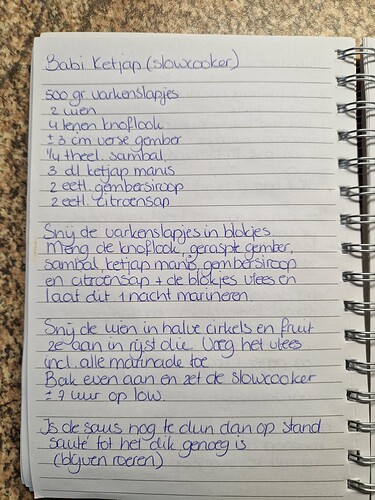 Babi Ketjap (slowcooker)
500 gr varkenslapjes
2 uien
4 tenen knoflook
± 3 cm verse gember
1/4 theel. sambal
3 dl ketjap manis
2 eetl. gembersiroop
2 eetl. citroensap
Snij de varkenslapjes in blokjes
Meng de knoflook, geraspte gember,
sambal, ketjap manis, gembersiroop
en citroensap + de blokjes vlees en
laat dit 1 nacht marineren
Snij de uien in halve cirkels en fruit
ze aan in rijstolie. Voeg het vlees
incl. alle marinade toe
Bak even aan en zet de slowcooker
± 7 uur op low.
Is de saus nog te dun dan op stand
sauté tot het dik genoeg is
(blijven roeren)